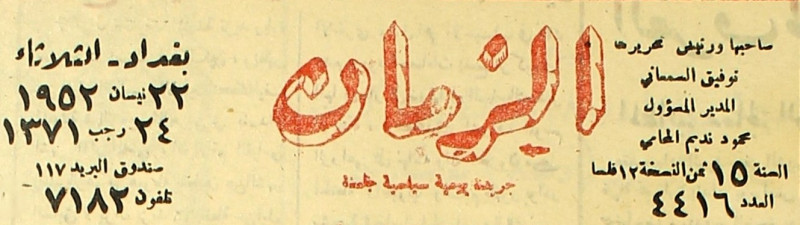 صاحبها ورئيس تحريرها
توفيق السمعاني
المدير المسؤول
محمود نديم المحامي
السنة ١٥ ثمن النسخة ١٢ فلسا
العدد ٤٤١٦
الزمان
جريدة يومية سياسية جامعة
بغداد - الثلاثاء
٢٢ نيسان ١٩٥٢
٢٤ رجب ١٣٧١
صندوق البريد ١١٧
تلفون ٧١٨٢